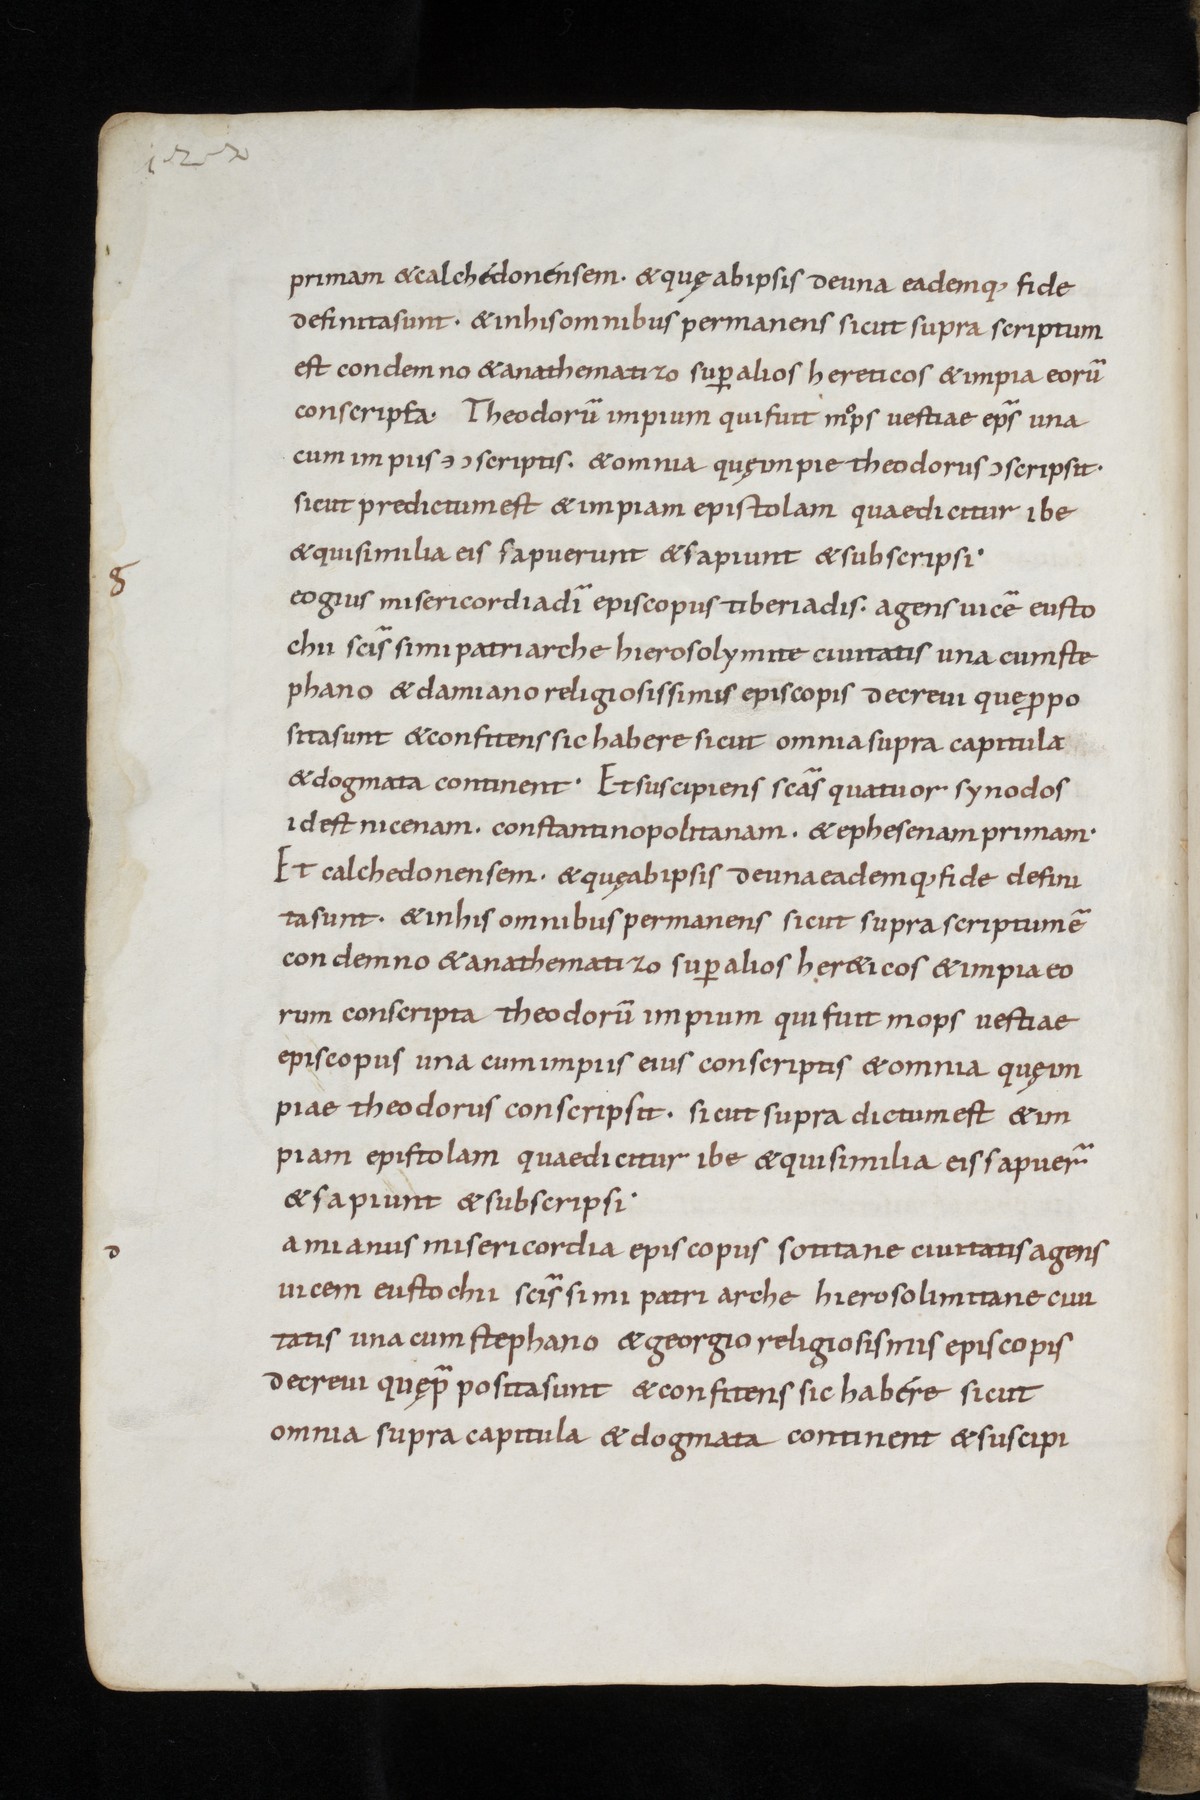 122
primam & calchedonensem. & quę ab ipsis de una eademq; fide
definita sunt. & in his omnibus permanens sicut supra scriptum
est condemno & anathematizo sup̱ alios hereticos & impia eorū
conscripta. Theodorū impium qui fuit mops uestiae ep̄s una
cum impiis ɔɔscriptis. & omnia quę impie theodorus ɔscripsit.
sicut predictum est & impiam epistolam quae dicitur ibe
& qui similia eis sapuerunt & sapiunt & subscripsi.
g
eogius misericordia dī episcopus tiberiadis. agens uicē eusto
chii scīssimi patriarche hierosolymite ciuitatis una cum ste
phano & damiano religiosissimis episcopis decreui quę ꝓpo
sita sunt & confitens sic habere sicut omnia supra capitula
& dogmata continent. Et suscipiens scās quatuor synodos
id est nicenam. constantinopolitanam. & ephesenam primam.
Et calchedonensem. & quę ab ipsis de una eademq; fide defini
ta sunt. & in his omnibus permanens sicut supra scriptum ē
condemno & anathematizo sup̱ alios her&icos & impia eo
rum conscripta theodorū impium qui fuit mops uestiae
episcopus una cum impiis eius conscriptis & omnia quę im
piae theodorus conscripsit. sicut supra dictum est & im
piam epistolam quae dicitur ibe & qui similia eis sapuer̄
& sapiunt & subscripsi.
d
amianus misericordia episcopus sotitane ciuitatis agens
uicem eustochii scīssimi patriarche hierosolimitane ciui
tatis una cum stephano & georgio religiosisimis episcopis
decreui quę p̄posita sunt & confitens sic habére sicut
omnia supra capitula & dogmata continent & suscipi